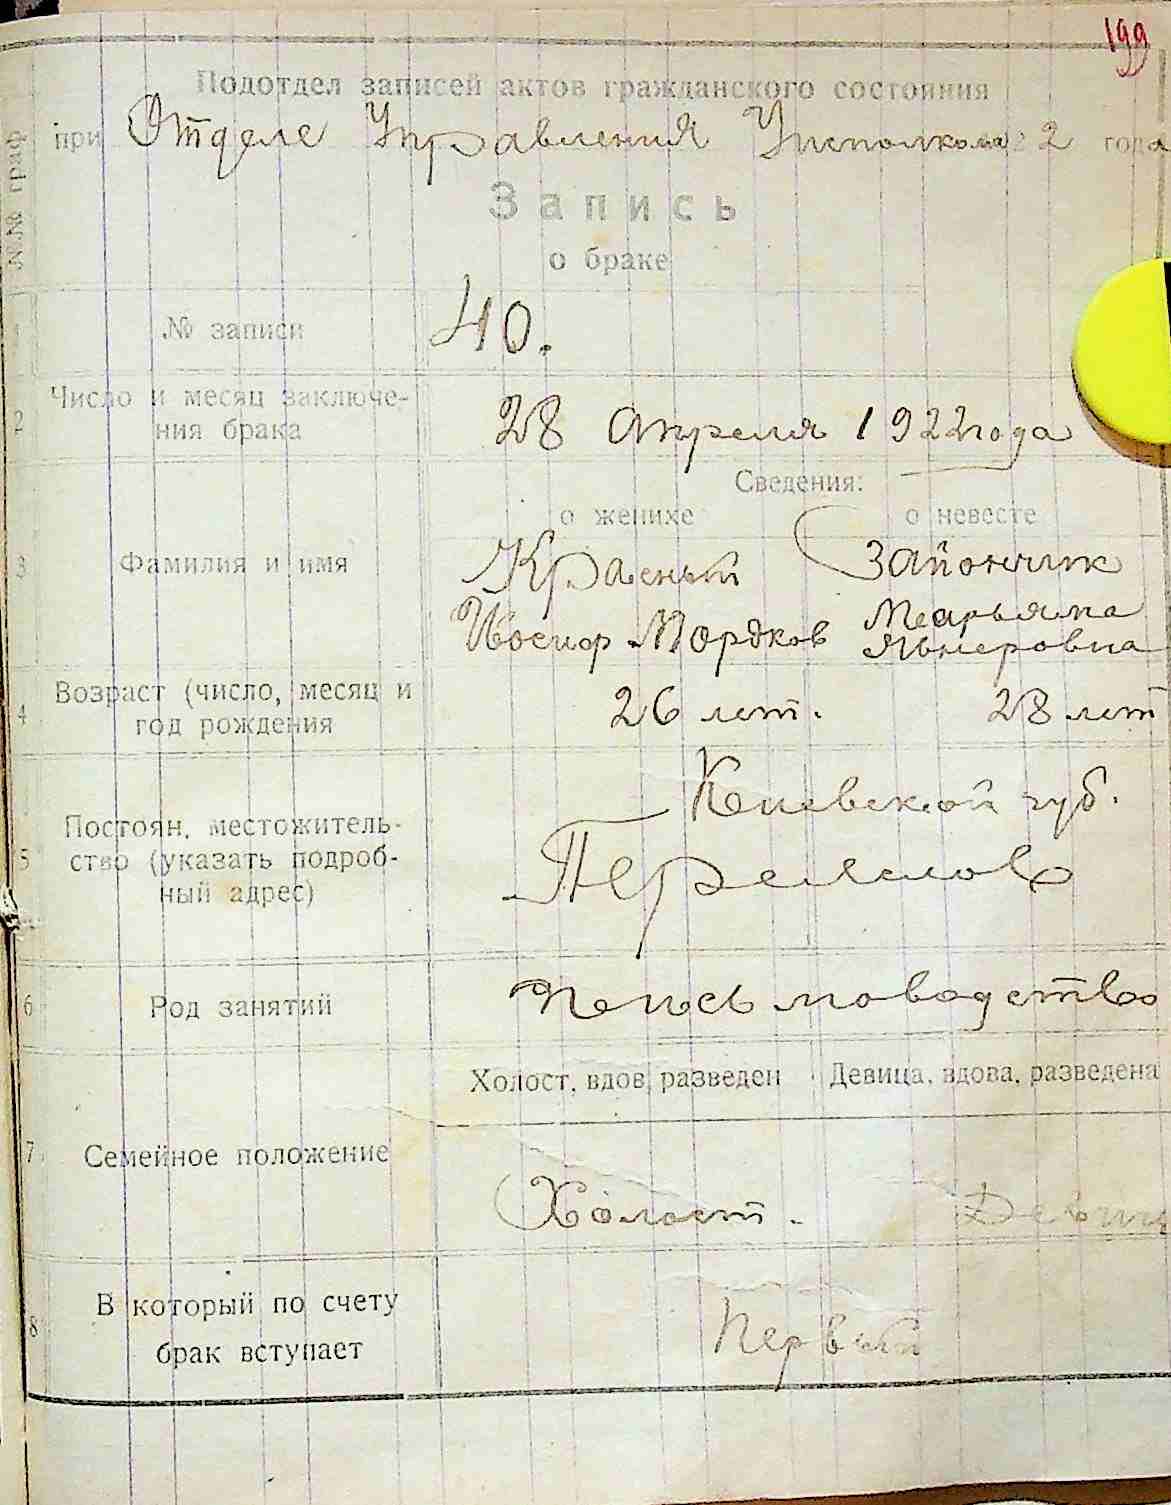 199
Подотдел записей актов гражданского состояния
при Отделе Управления Исполкома 2 года
№№ граф
Запись
о браке
1 № записи 40.
2 Число и месяц заключе-
ния брака 28 Апреля 1922 года
Сведения:
о женихе о невесте
3 Фамилия и имя Красный Зайончик
Иосиф Мордков Марьяма
4 Возраст (число, месяц и
год рождения 26 лет. 28 лет
Киевской губ.
5 Постоян. местожитель-
ство (указать подроб-
ный адрес)
6 Род занятий Письмоводство
Холост, вдов, разведен Девица, вдова, разведена
7 Семейное положение
Холост. Девиц
8 В который по счету
брак вступает Первый